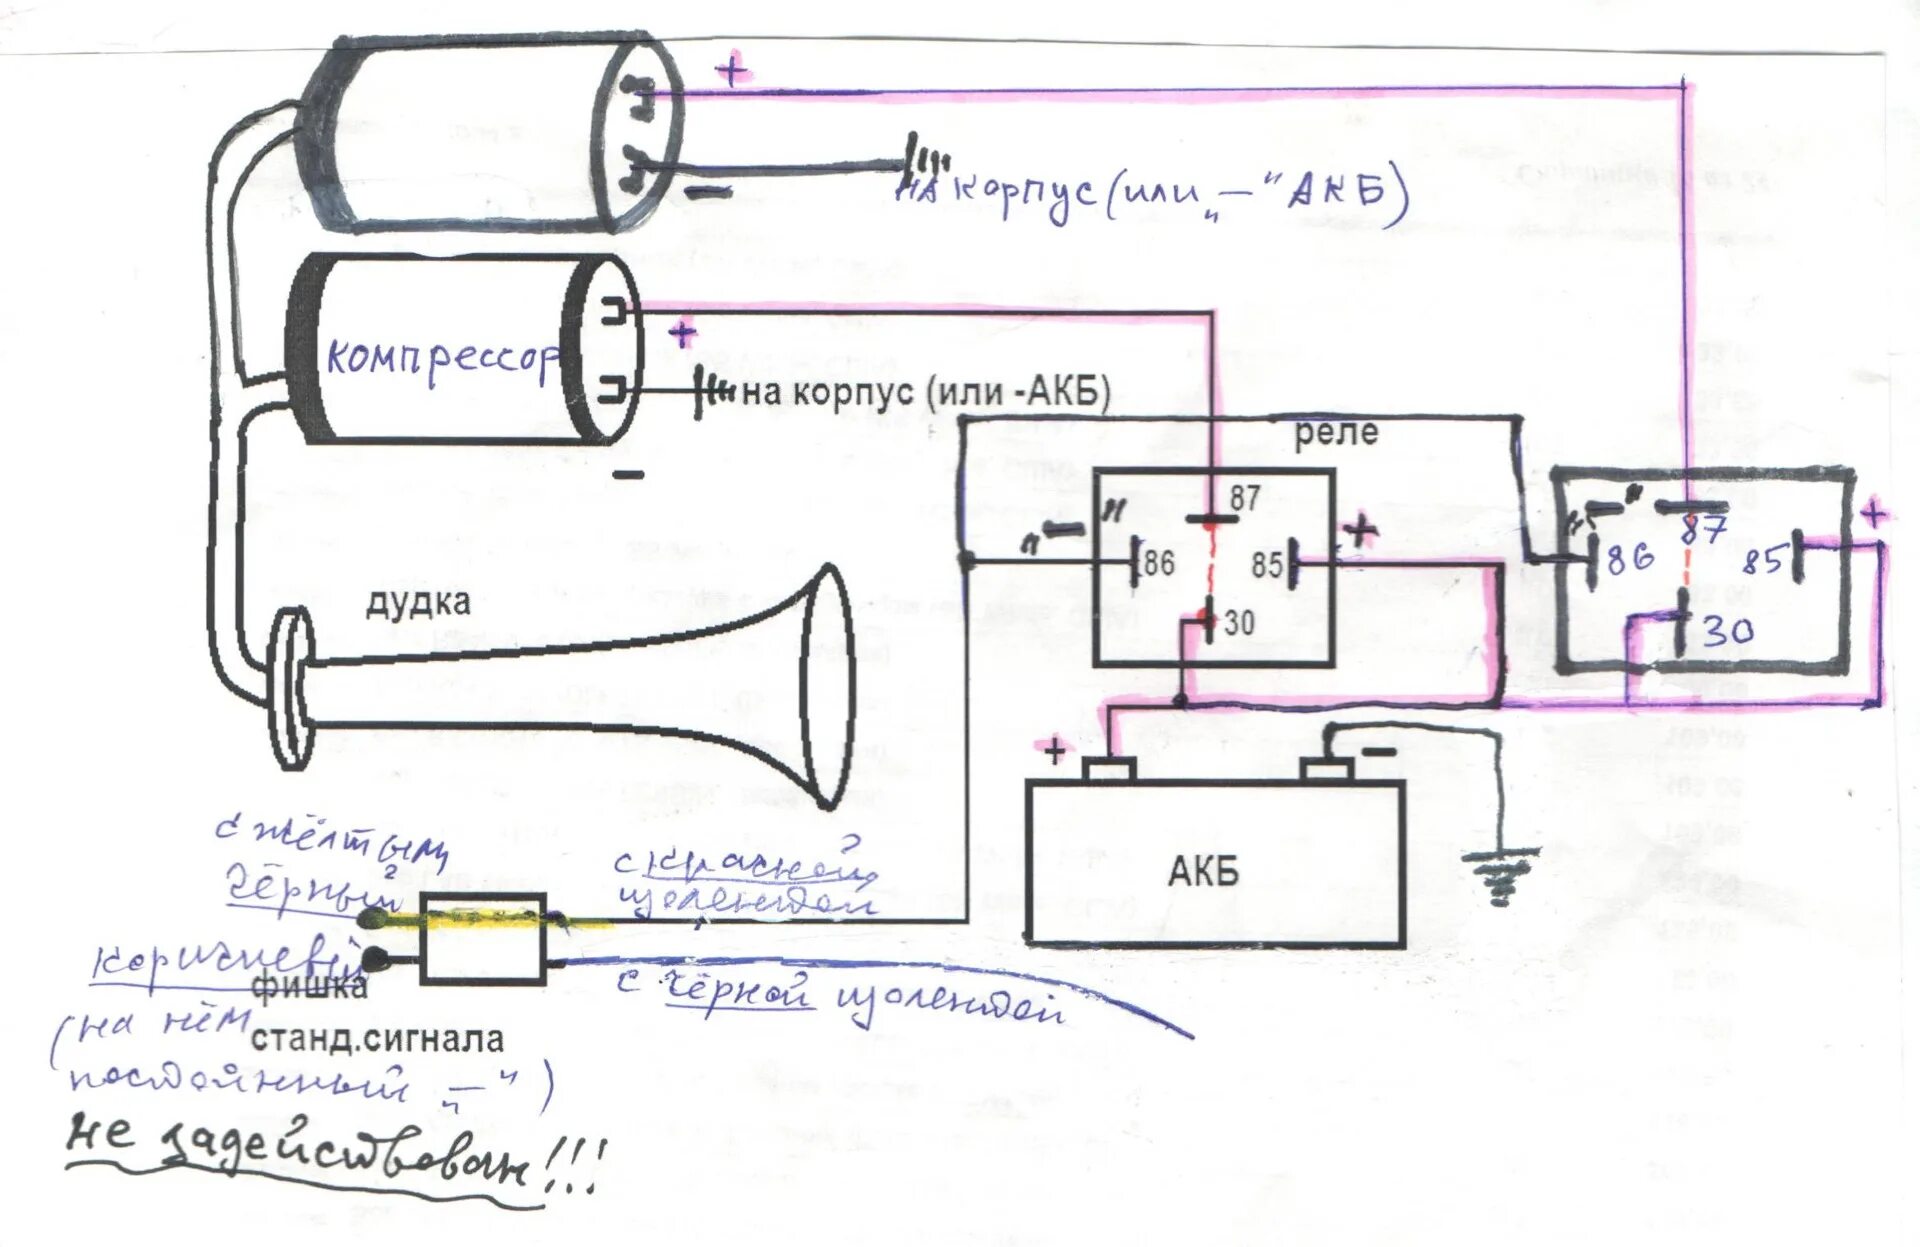 +
−
на корпус (или „—" АКБ)
компрессор
+
на корпус (или -АКБ)
−
реле
"—"
87
86
85
+
30
"—"
87
86
85
+
30
дудка
+
−
АКБ
с жёлтым
чёрный
с красной
изолентой
коричневый
фишка
с чёрной изолентой
(на нём
станд.сигнала
постоянный „—")
не задействован!!!